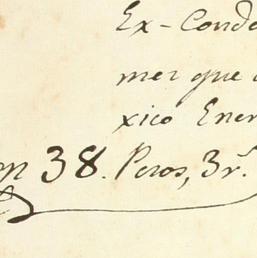 Ex-Conde
mer que
xico Ener
n 38. Pesos, 3r.